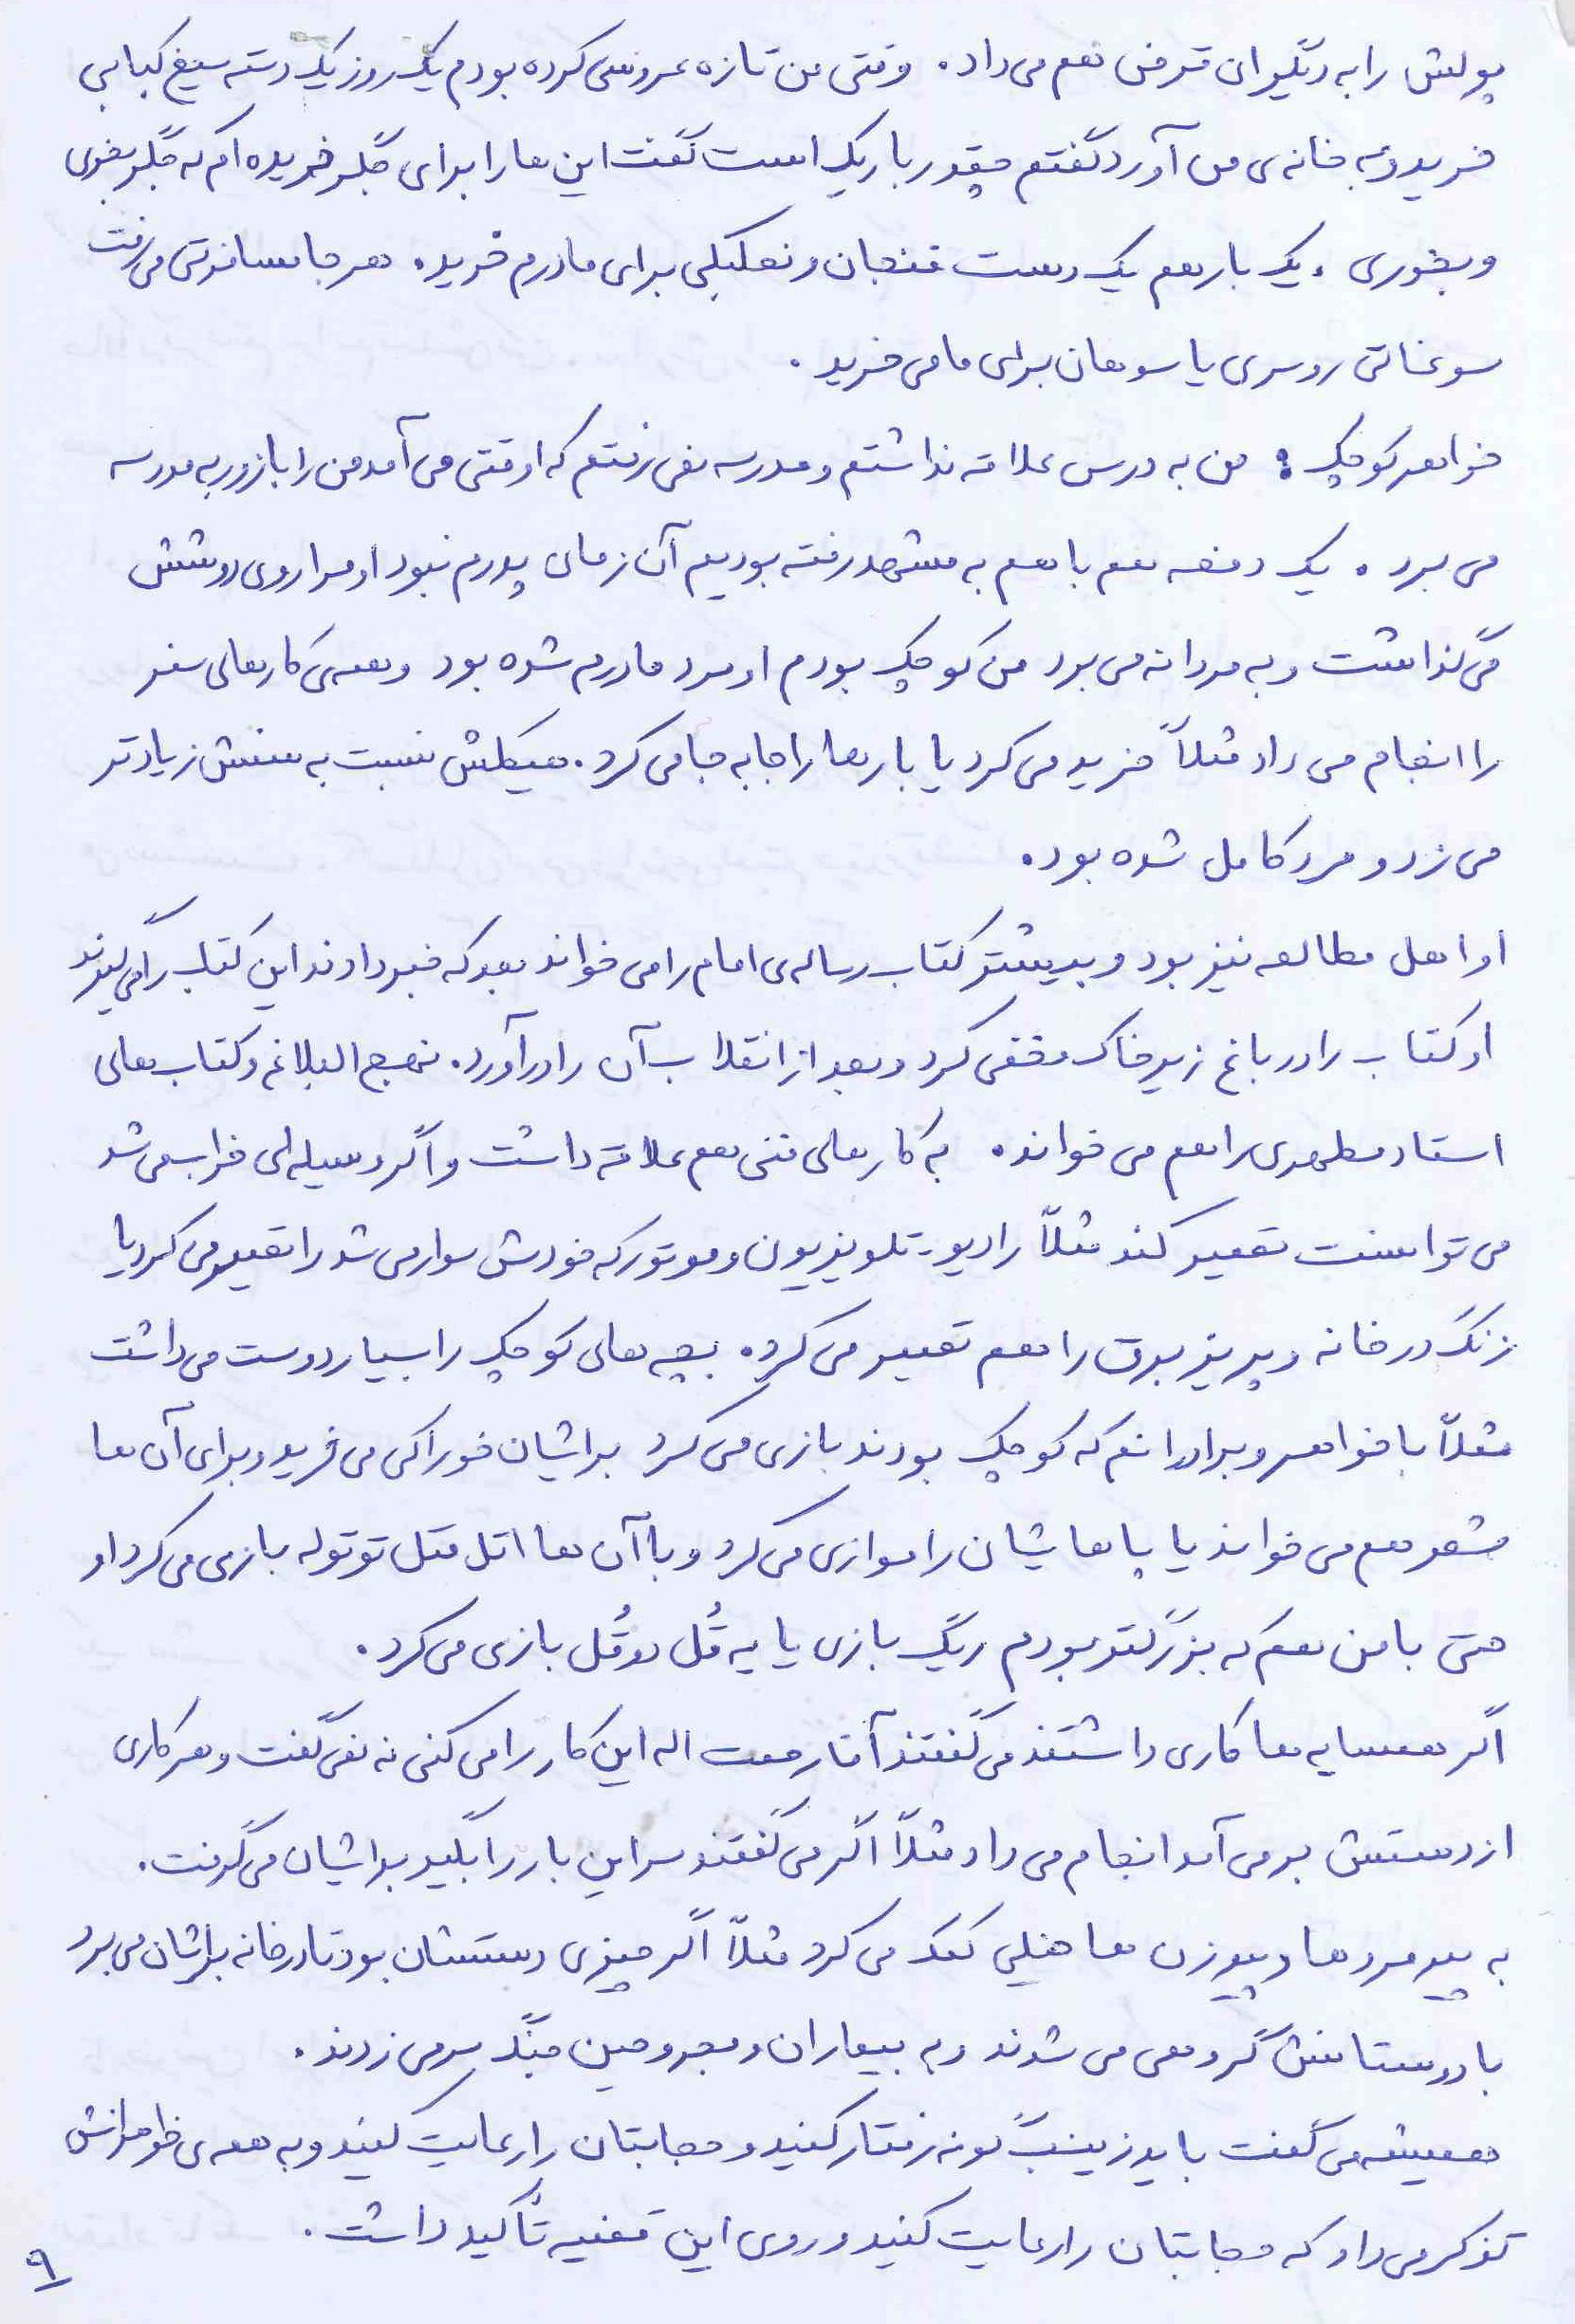 پولش را به دیگران قرض هم می داد. وقتی من تازه عروسی کرده بودم یک روز یک دسته سیخ کبابی
خرید و به خانه ی من آورد گفتم چقدر باریک است گفت این ها را برای جگر خریده ام که جگر بخری
و بخوری. یک بار هم یک دست فنجان و نعلبکی برای مادرم خرید. هر جا مسافرتی می رفت
سوغاتی روسری یا سوهان برای ما می خرید.
خواهر کوچک: من به درس علاقه نداشتم و مدرسه نمی رفتم که او وقتی می آمد من را با زور به مدرسه
می برد. یک دفعه هم با هم به مشهد رفته بودیم آن زمان پدرم نبود او مرا روی دوشش
می گذاشت و به مردانه می برد من کوچک بودم او مرد مادرم شده بود و همه ی کارهای سفر
را انجام می داد مثلاً خرید می کرد یا بارها را جا به جا می کرد. هیکلش نسبت به سنش زیادتر
می زد و مرد کامل شده بود.
او اهل مطالعه نیز بود و بیشتر کتاب رساله ی امام را می خواند بعد که خبر دادند این کتاب را می گیرند
او کتاب را در باغ زیر خاک مخفی کرد و بعد از انقلاب آن را درآورد. نهج البلاغه و کتاب های
استاد مطهری را هم می خواند. به کارهای فنی هم علاقه داشت و اگر وسیله ای خراب می شد
می توانست تعمیر کند مثلاً رادیو - تلویزیون و موتور که خودش سوار می شد را تعمیر می کرد یا
زنگ در خانه و پریز برق را هم تعمیر می کرد. بچه های کوچک را بسیار دوست می داشت
مثلاً با خواهر و برادرانم که کوچک بودند بازی می کرد برایشان خوراکی می خرید و برای آن ها
شعر هم می خواند یا پاهایشان را موازی می کرد و با آن ها اتل متل توتوله بازی می کرد او
حتی با من هم که بزرگتر بودم ریگ بازی یا یه قُل دو قُل بازی می کرد.
اگر همسایه ها کاری داشتند می گفتند آقا رحمت اله این کار را می کنی نه نمی گفت و هر کاری
از دستش برمی آمد انجام می داد مثلاً اگر می گفتند سر این بار را بگیر برایشان می گرفت.
به پیرمردها و پیرزن ها خیلی کمک می کرد مثلاً اگر چیزی دستشان بود تا در خانه برایشان می برد
با دوستانش گروهی می شدند و به بیماران و مجروحین جنگ سر می زدند.
همیشه می گفت باید زینب گونه رفتار کنید و حجابتان را رعایت کنید و به همه ی خواهرانش
تذکر می داد که حجابتان را رعایت کنید و روی این قضیه تأکید داشت.
۹